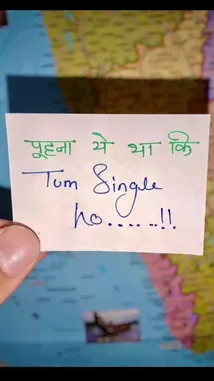 पूछना ये था कि
Tum Single
ho......!!